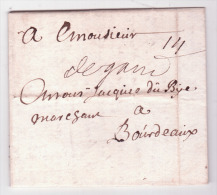 A Monsieur
14
de gand
Jacques du Bye
marchant
a
Bourdeaux